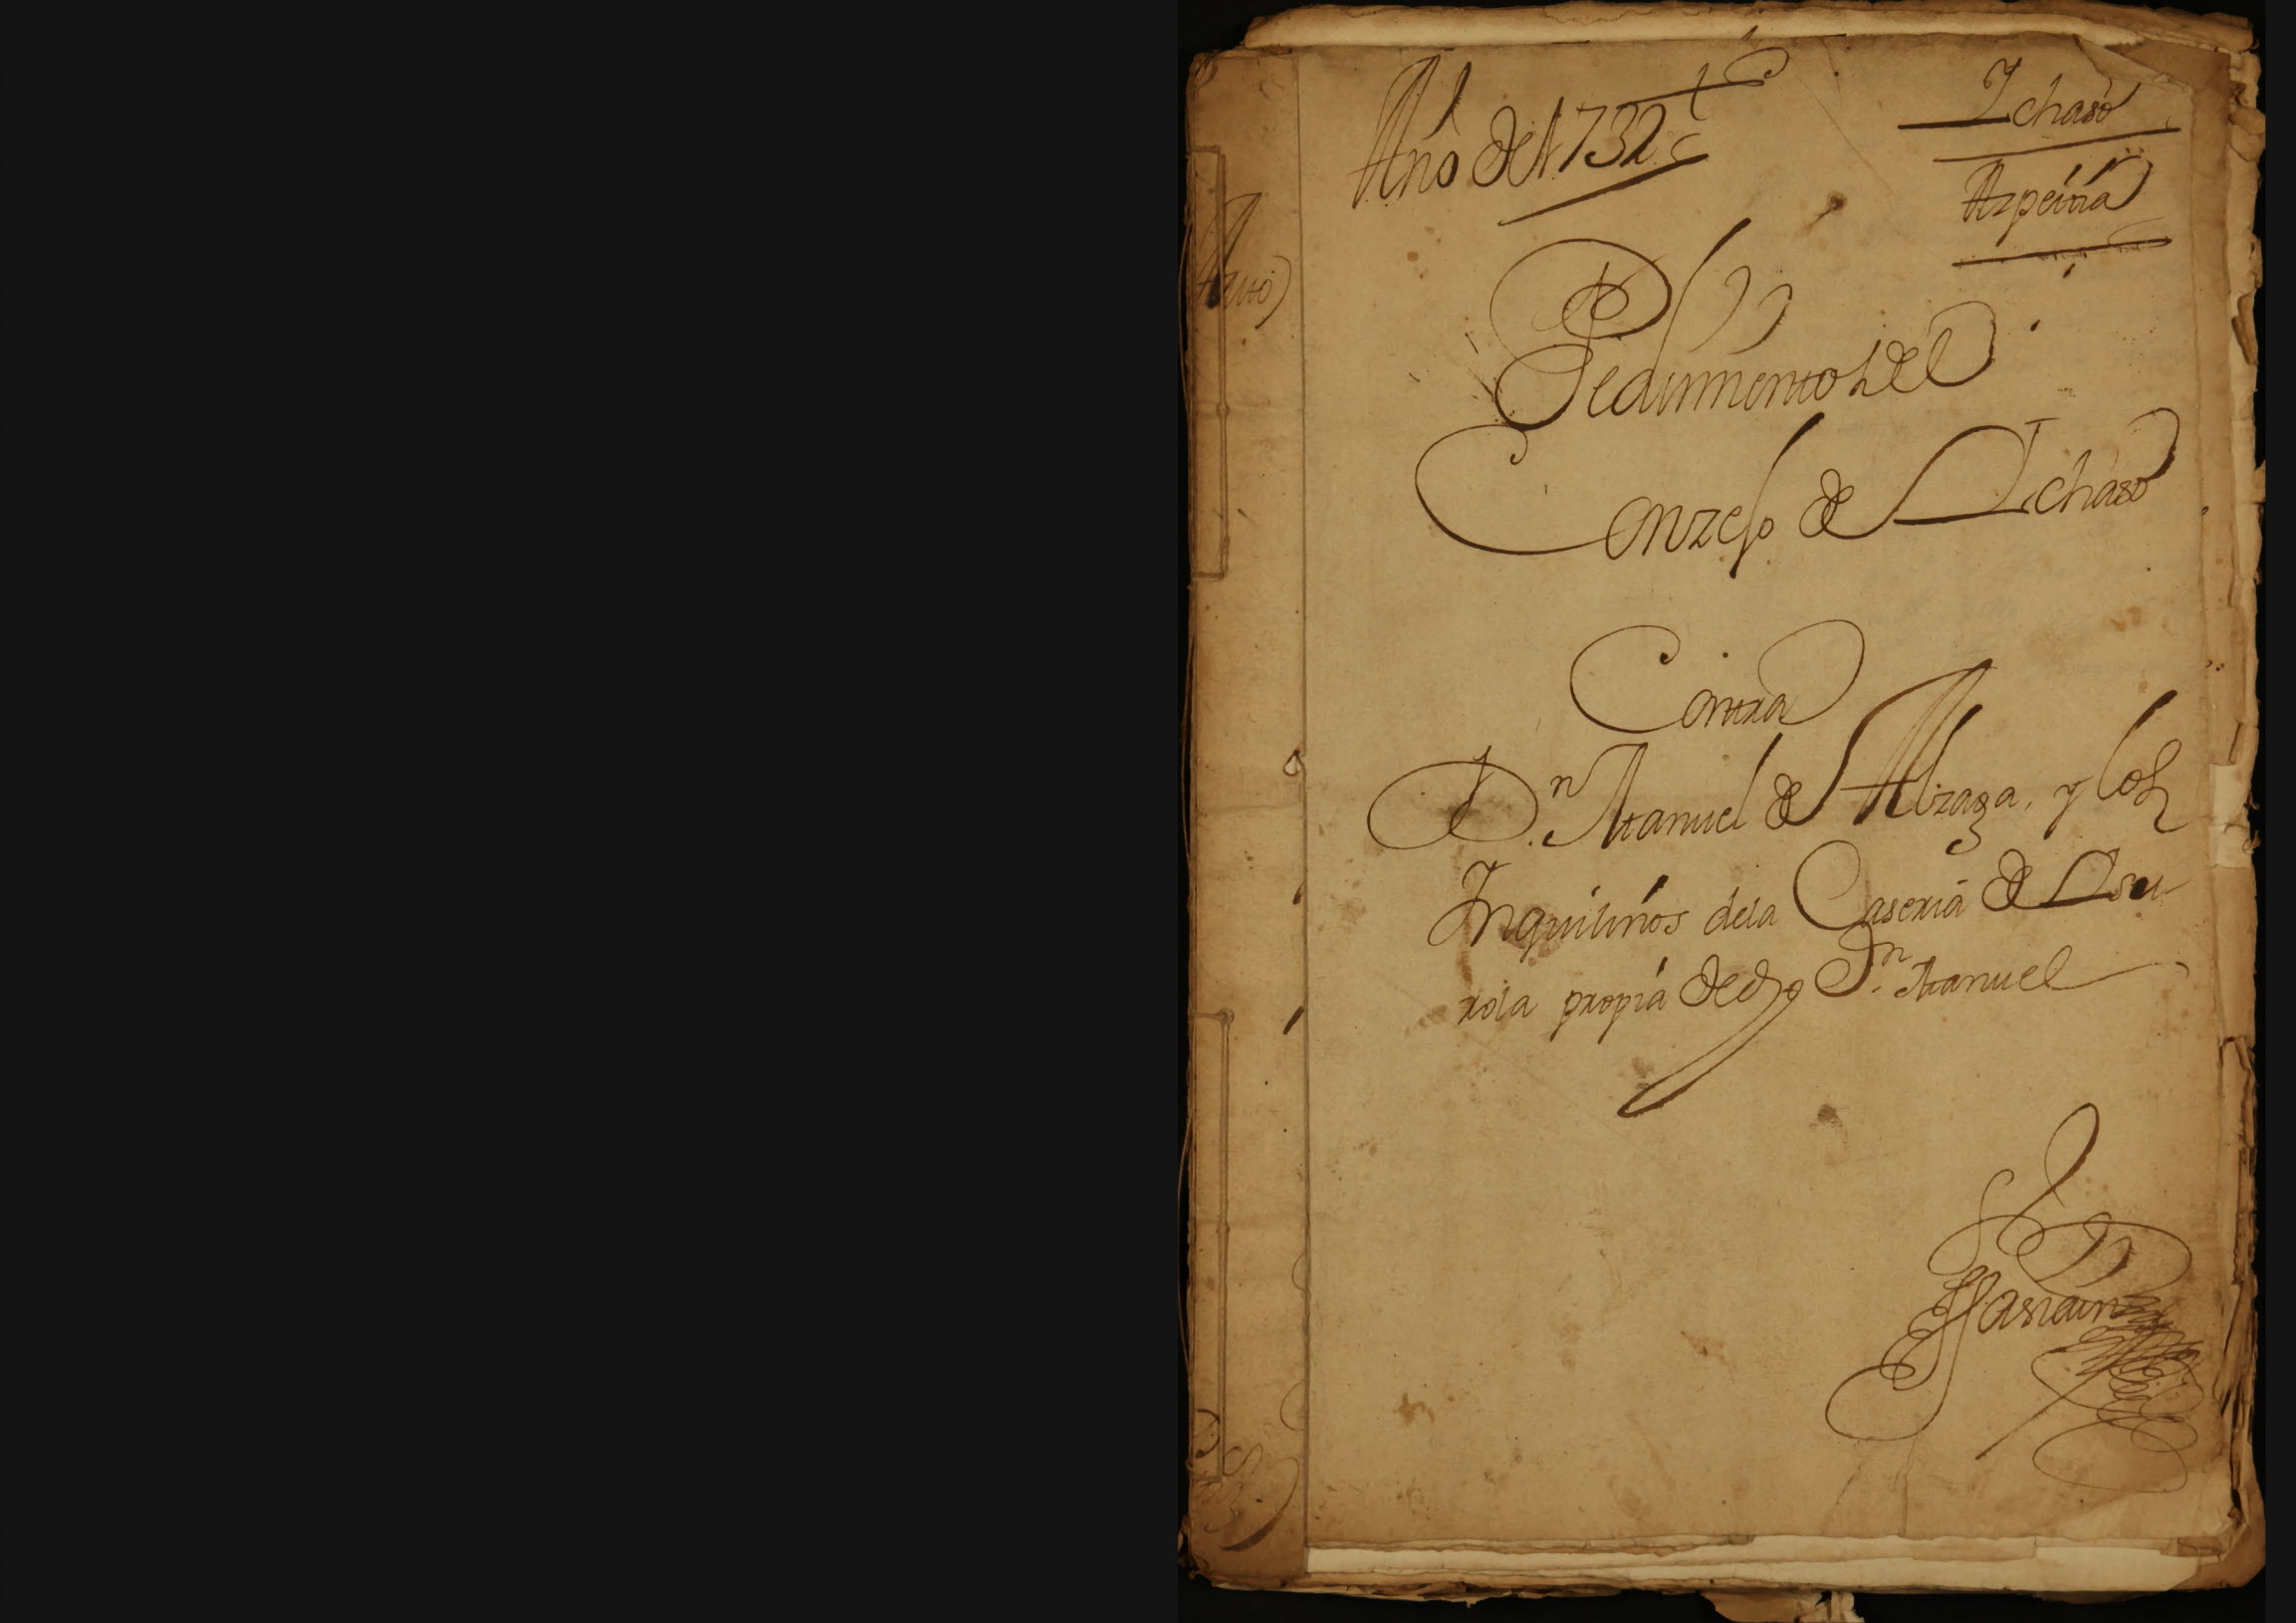 Año de 1732
Ichaso
Azpeitia
Pedimento del
Conzejo de Ichaso
Contra
Dn. Manuel de Alzaga, y los
Inquilinos dela Caseria de Usu-
rola propia de dho Dn. Manuel